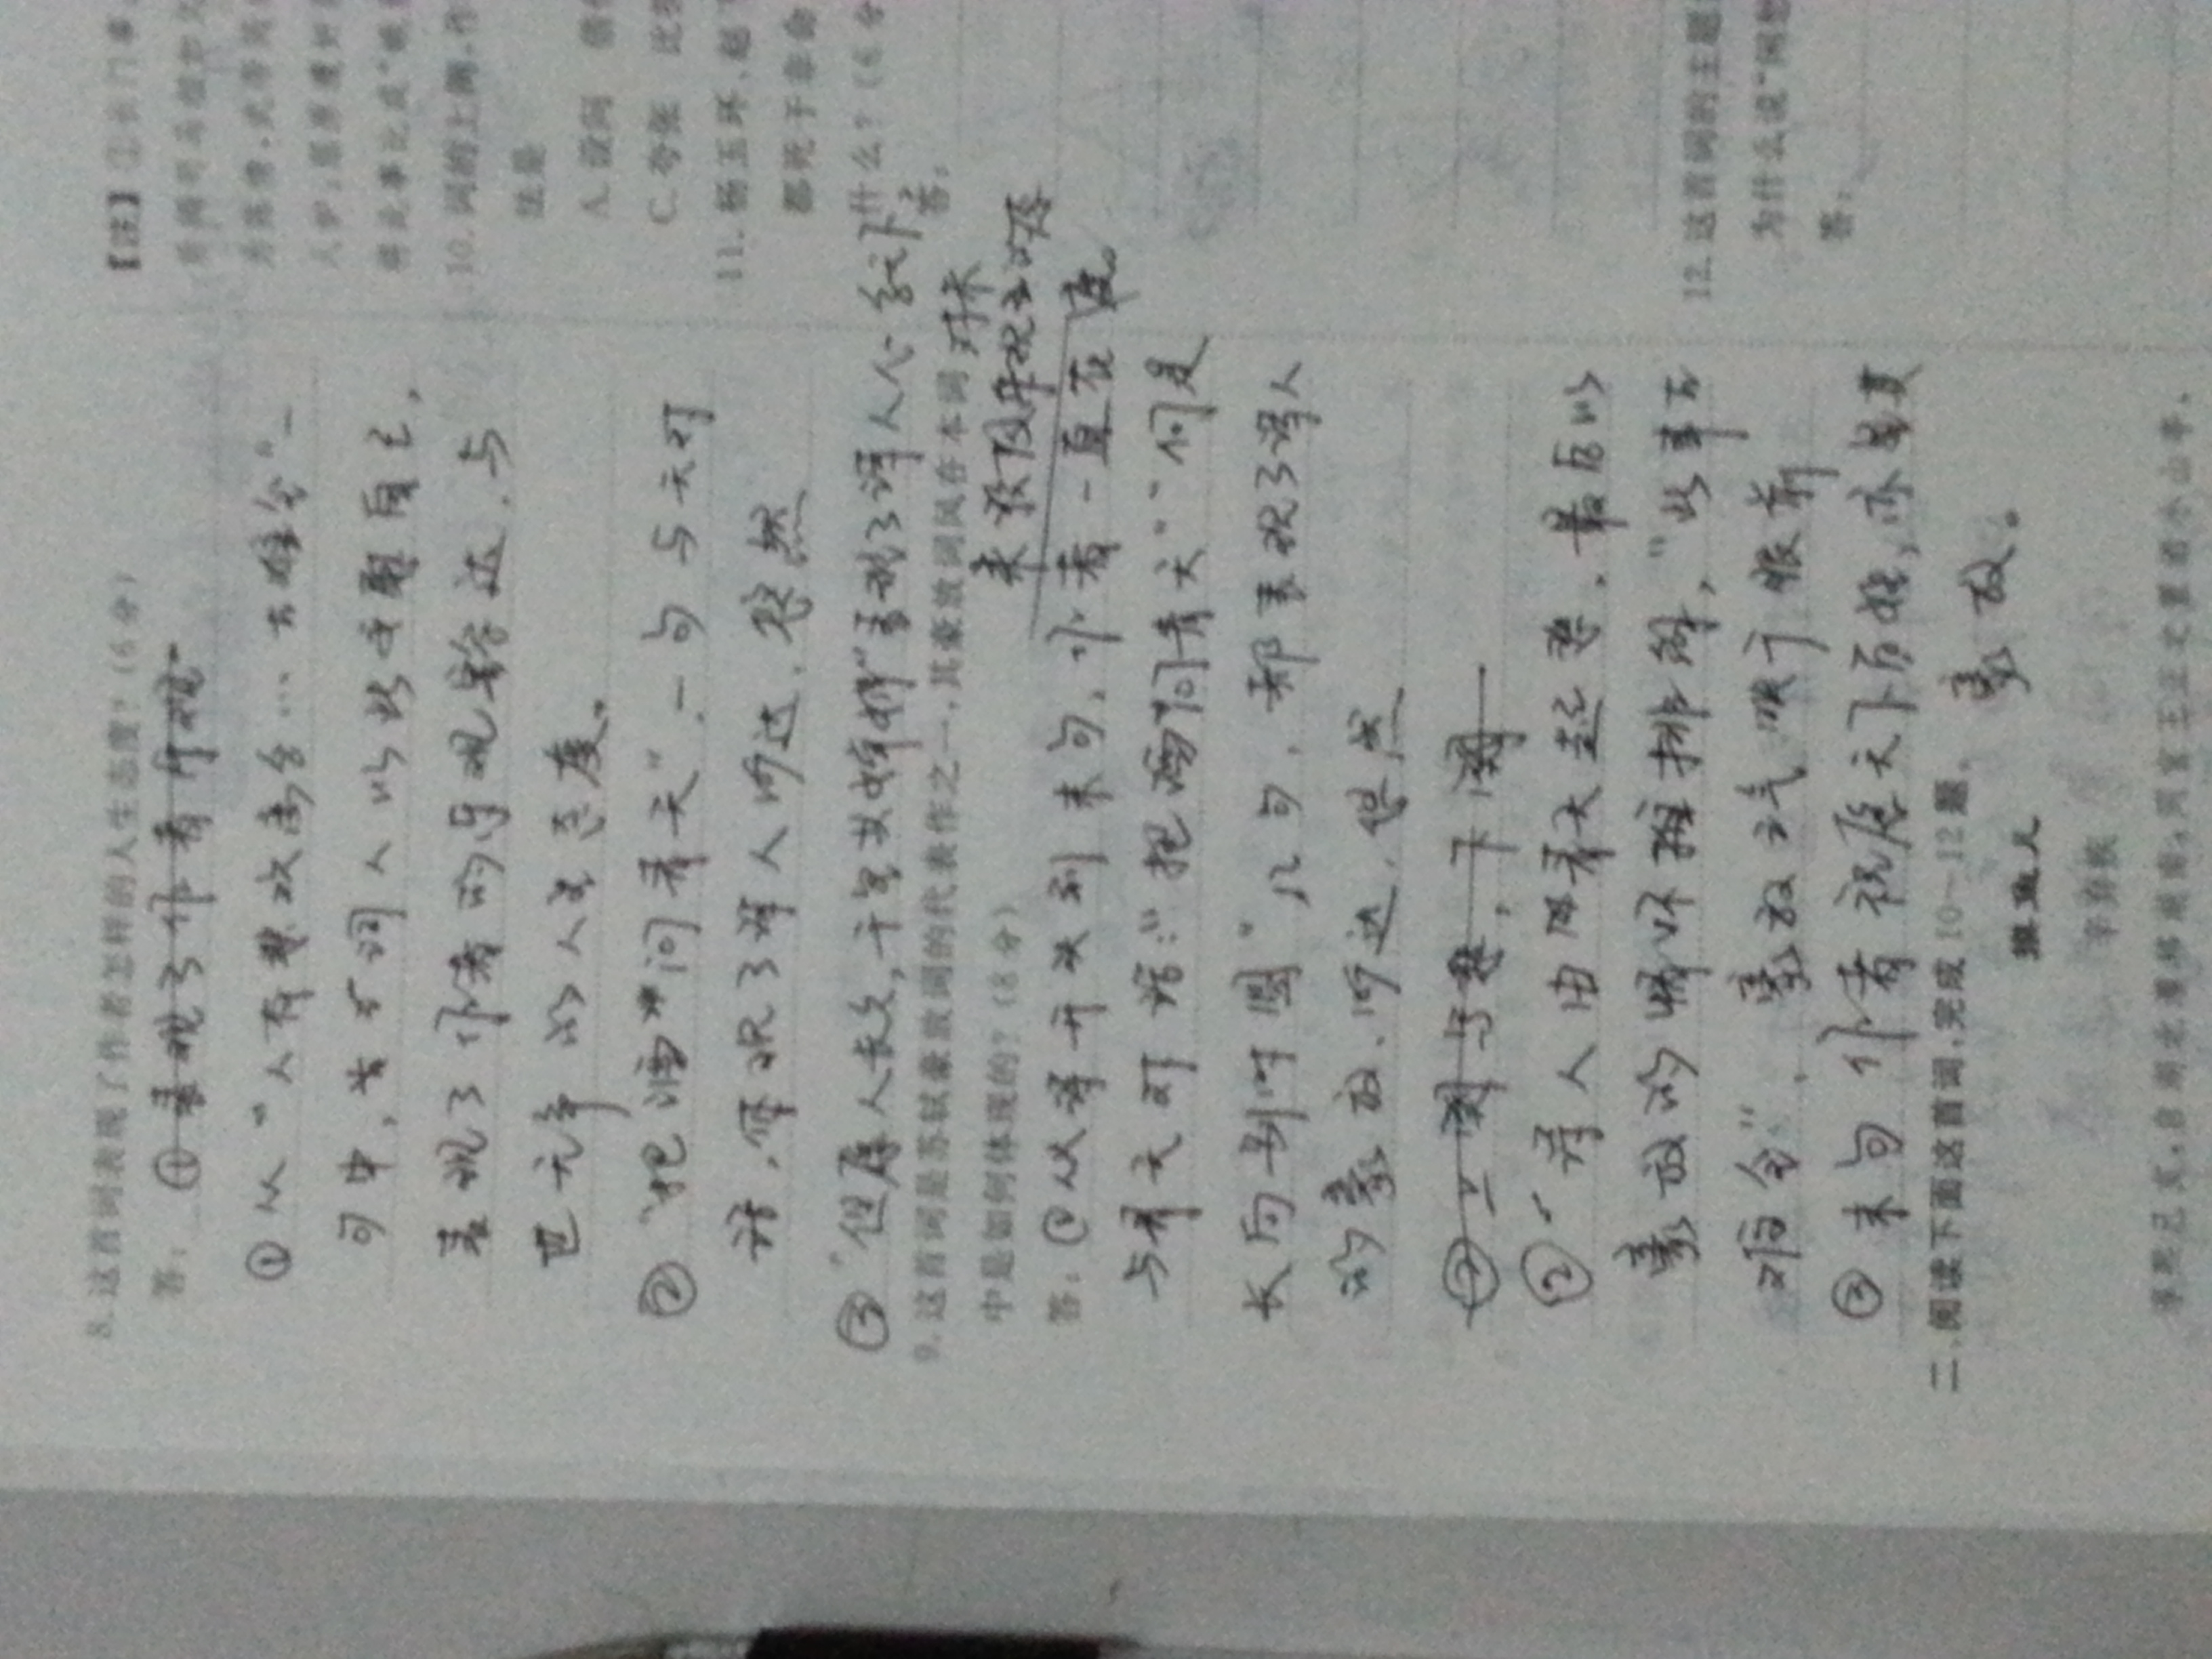 8. 这首词表现了作者怎样的人生态度?(6分)
答: ①表现了作者乐观
①从“人有悲欢离合…古难全”一
句中,词人以此安慰自己,
表现了作者的乐观豁达、与
世无争的人生态度。
②“把酒问青天”一句与天对
话,体现了诗人旷达、悠然
③“但愿人长久,千里共婵娟”表现了诗人心系天下
对未
来积极乐观的态
度。
9. 这首词是苏轼豪放词的代表作之一,其豪放词风在本词
中是如何体现的?(8分)
答: ①从开头到末句,作者一直在
与青天对话:“把酒问青天”“何是
长向别时圆”几句,都表现了诗人
的豪放、旷达、悠然
②上阕写愁,下阕
②诗人由青天起愁,最后以
豪放的情怀排解,“此事古
难全”,豪放之气映于眼前
③末句作者祝愿天下百姓,亦是其
豪放。
二、阅读下面这首词,完成10~12题。
摸鱼儿
辛弃疾
淳熙己亥,自湖北漕移湖南,同官王正之置酒小山亭,
【注】①长门事
10. 词的上阕,作
法是
A. 设问
C. 夸张
11. 杨玉环、赵飞
都死于非命
什么?(6分
答:
12. 这首词的主题
为什么说“闲愁
答: